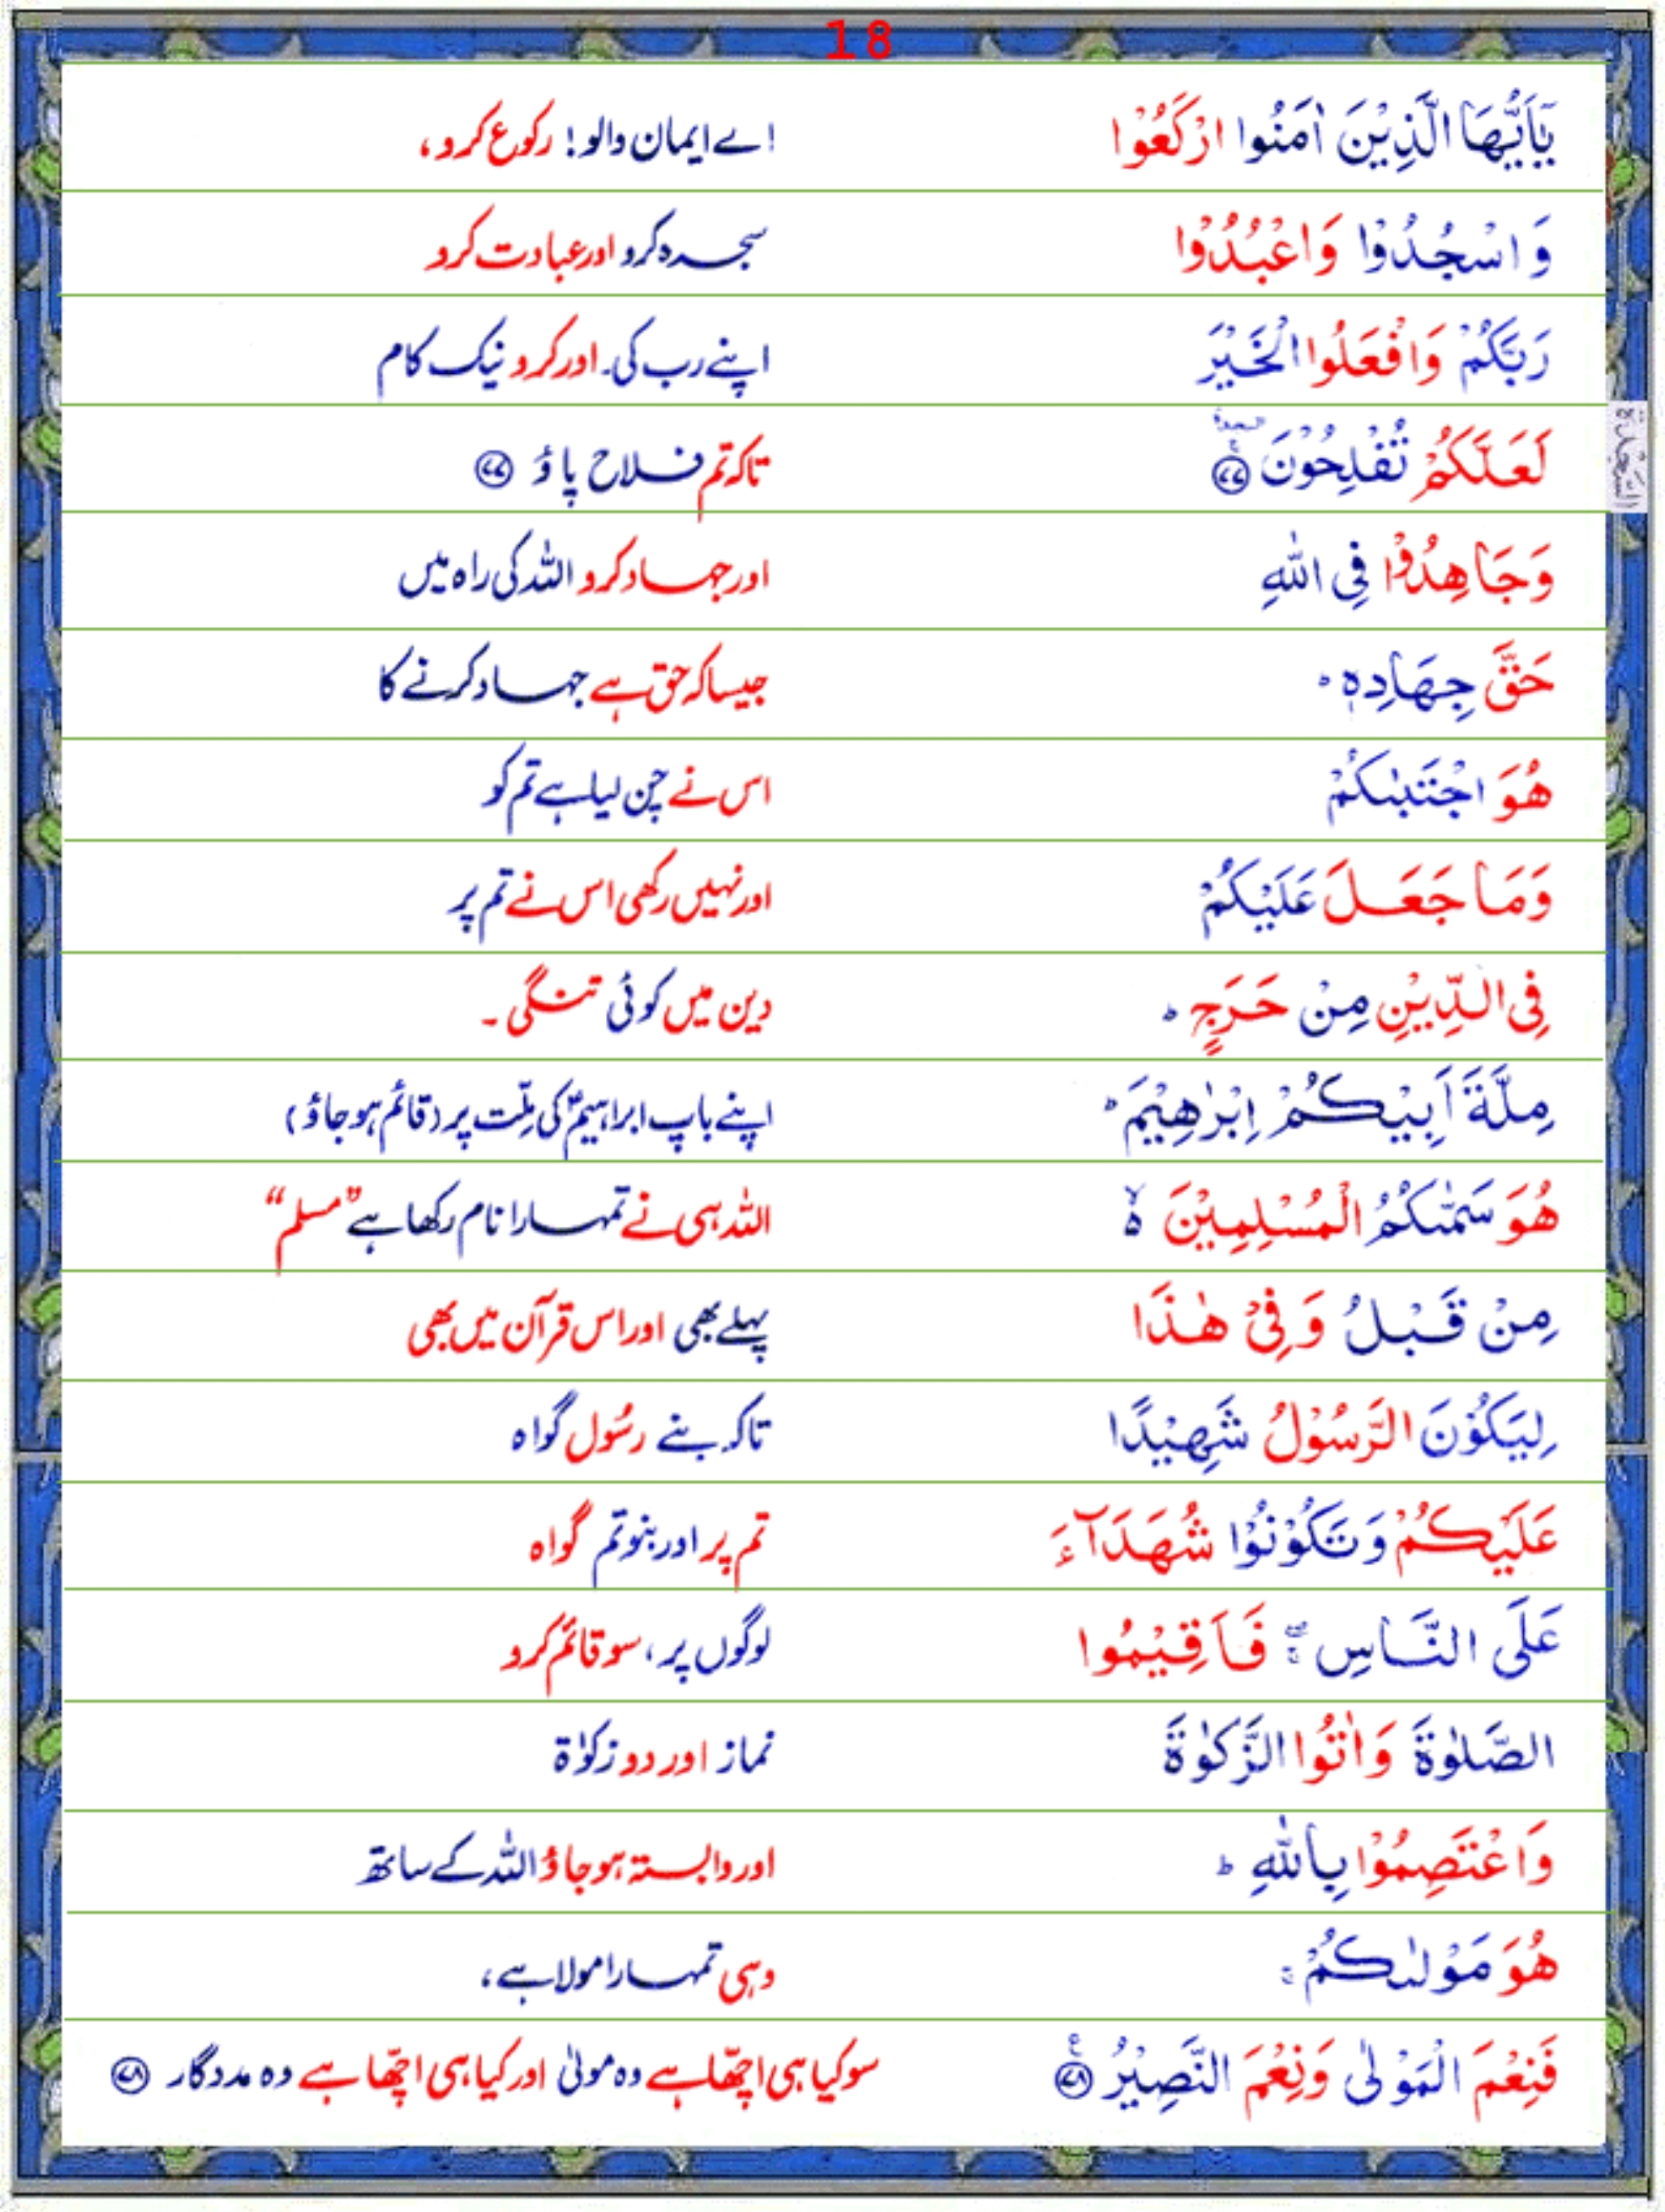 18
يٰۤاَيُّهَا الَّذِيْنَ اٰمَنُوا ارْكَعُوْا اے ایمان والو! رکوع کرو،
وَ اسْجُدُوْا وَاعْبُدُوْا سجدہ کرو اور عبادت کرو
رَبَّكُمْ وَافْعَلُوا الْخَيْرَ اپنے رب کی۔ اور کرو نیک کام
لَعَلَّكُمْ تُفْلِحُوْنَ ۩ ﴿۷۷﴾ تاکہ تم فلاح پاؤ ﴿۷۷﴾
السَّجْدَة
وَجَاهِدُوْا فِى اللّٰهِ اور جہاد کرو اللہ کی راہ میں
حَقَّ جِهَادِهٖ ؕ جیسا کہ حق ہے جہاد کرنے کا
هُوَ اجْتَبٰىكُمْ اس نے چن لیا ہے تم کو
وَمَا جَعَلَ عَلَيْكُمْ اور نہیں رکھی اس نے تم پر
فِى الدِّيْنِ مِنْ حَرَجٍ ؕ دین میں کوئی تنگی۔
مِلَّةَ اَبِيْكُمْ اِبْرٰهِيْمَ ؕ اپنے باپ ابراہیمؑ کی ملّت پر (قائم ہو جاؤ)
هُوَ سَمّٰىكُمُ الْمُسْلِمِيْنَ ۙ۬ اللہ ہی نے تمہارا نام رکھا ہے ”مسلم“
مِنْ قَبْلُ وَفِىْ هٰذَا پہلے بھی اور اس قرآن میں بھی
لِيَكُوْنَ الرَّسُوْلُ شَهِيْدًا تاکہ بنے رسُول گواہ
عَلَيْكُمْ وَتَكُوْنُوْا شُهَدَآءَ تم پر اور بنو تم گواہ
عَلَى النَّاسِ ۖۚ فَاَقِيْمُوا لوگوں پر، سو قائم کرو
الصَّلٰوةَ وَاٰتُوا الزَّكٰوةَ نماز اور دو زکوٰۃ
وَاعْتَصِمُوْا بِاللّٰهِ ؕ اور وابستہ ہو جاؤ اللہ کے ساتھ
هُوَ مَوْلٰىكُمْ ۚ وہی تمہارا مولا ہے،
فَنِعْمَ الْمَوْلٰى وَنِعْمَ النَّصِيْرُ ﴿۷۸﴾ سو کیا ہی اچھّا ہے وہ مولیٰ اور کیا ہی اچھّا ہے وہ مددگار ﴿۷۸﴾